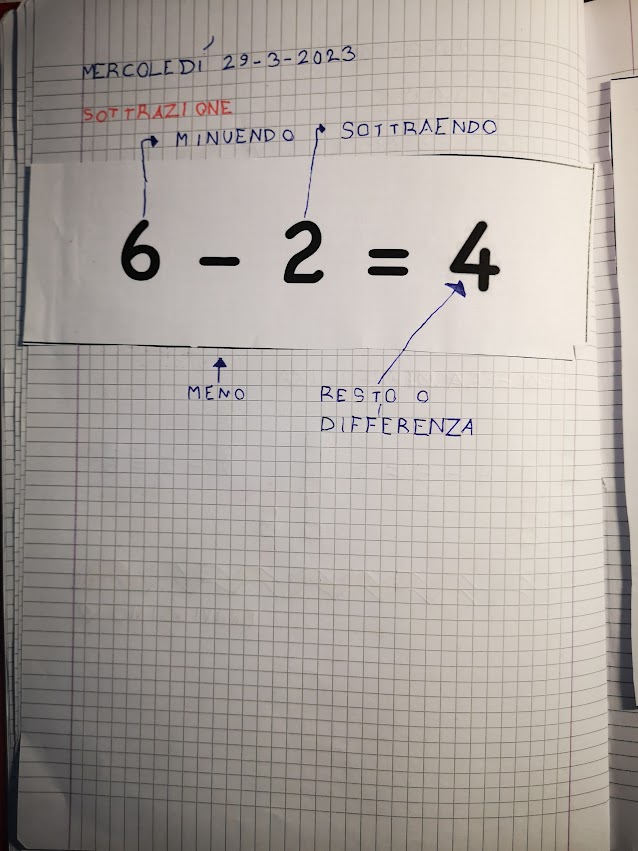 MERCOLEDÍ 29-3-2023
SOTTRAZIONE
MINUENDO SOTTRAENDO
6 - 2 = 4
MENO RESTO O
DIFFERENZA